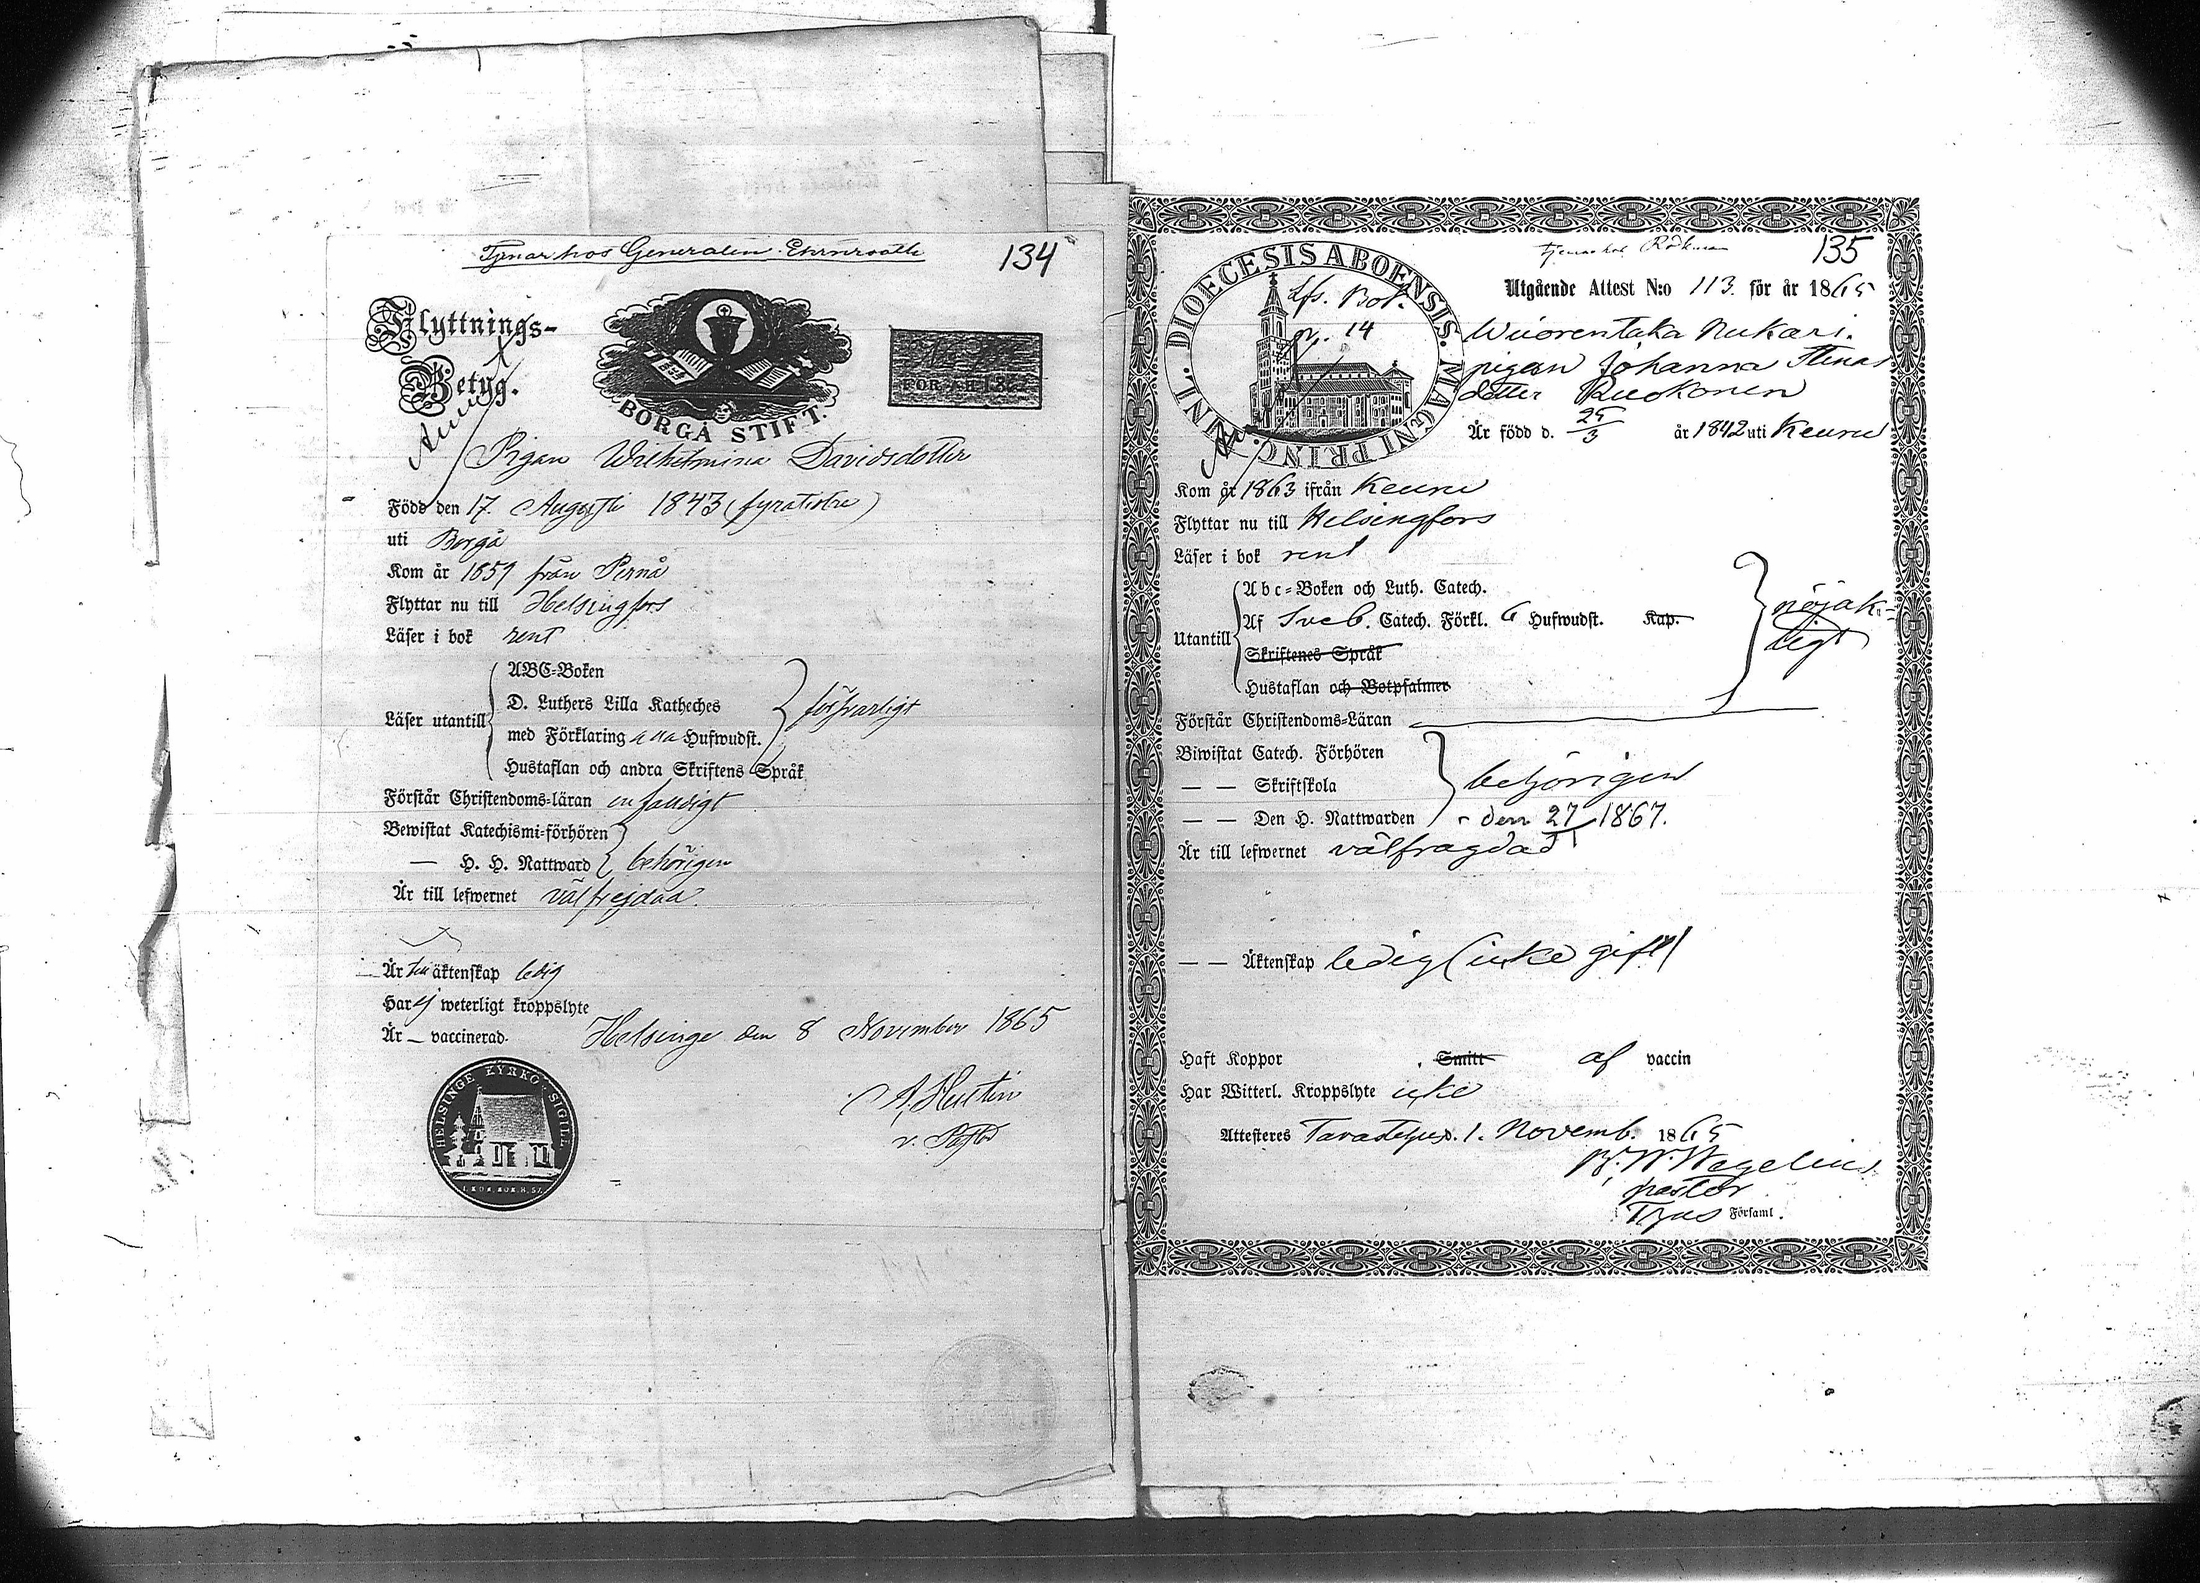 Tjenar hos Generalen Ehrnrooth
134
Flyttnings-
Betyg.
BORGÅ STIFT.
FÖR ÅR 186
Pigan Wilhelmina Davidsdotter
Född den 17 Augusti 1843 (fyratiotre)
uti Borgå
Kom år 1859 från Pernå
Flyttar nu till Helsingfors
Läser i bok rent
Läser utantill
ABC-Boken
D. Luthers Lilla Katheches
med Förklaring alla Hufwudst.
Hustaflan och andra Skriftens Språk
försvarligt
Förstår Christendoms-läran enfaldigt
Bewistat Katechismi-förhören
— H. H. Nattward
behörigen
Är till lefwernet välfrejdad
Är till äktenskap ledig
Har ej weterligt kroppslyte
Är — vaccinerad.
Helsinge den 8 November 1865
v. Pastor
HELSINGE KYRKO SIGILL
135
DIOECESIS ABOENSIS. MAGNI PRINC. FINL.
Utgående Attest N:o 113. för år 1865
Nukari.
pigan Johanna Stinas
dotter Ruokonen
Är född d. 25/3 år 1842 uti Keuru
Kom år 1863 ifrån Keuru
Flyttar nu till Helsingfors
Läser i bok rent
Utantill
Abc-Boken och Luth. Catech.
Af Sveb. Catech. Förkl. 6 Hufwudst. Kap.
Skriftenes Språk
Hustaflan och Botpsalmer
nöjak-
ligt
Förstår Christendoms-Läran
Biwistat Catech. Förhören
— — Skriftskola
— — Den H. Nattwarden
behörigen
den 27 1867.
Är till lefwernet välfragdad
— — Äktenskap ledig (icke gift)
Haft Koppor Smitt af vaccin
Har Witterl. Kroppslyte icke
Attesteres Tavastehus d. 1. Novemb. 1865
Wegelius
pastor
Församl.